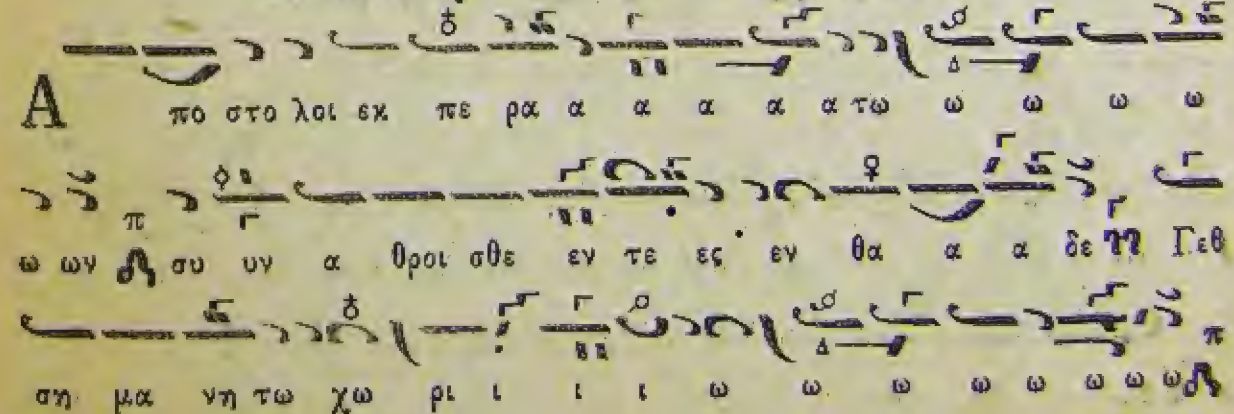 Α πο στο λοι εκ πε ρα α α α α α τω ω ω ω ω
ω ων π συ υν α θροι σθε εν τε ες εν θα α α δε Γεθ
ση μα νη τω χω ρι ι ι ι ω ω ω ω ω ω ω ω π